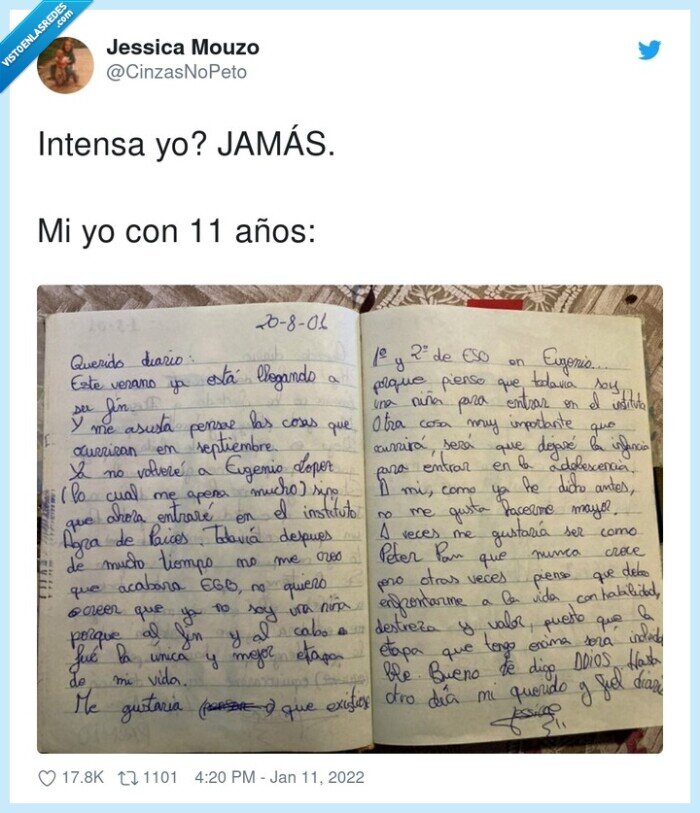 VISTOENLASREDES
.com
Jessica Mouzo
@CinzasNoPeto
Intensa yo? JAMÁS.
Mi yo con 11 años:
20-8-01
Querido diario:
Este verano ya está llegando a
su fin.
Y me asusta pensar las cosas que
ocurriran en septiembre.
Ya no volveré a Eugenio Lopez
(lo cual me apena mucho) sino
que ahora entraré en el instituto
Agra de Raíces. Todaviá despues
de mucho tiempo no me creo
que acabara EGB, no quiero
creer que ya no soy una niña
porque al fin y al cabo
fué la única y mejor etapa
de mi vida.
Me gustaria que existiese
1º y 2º de ESO en Eugenio...
porque pienso que todavia soy
una niña para entrar en el instituto
Otra cosa muy importante que
ocurrirá, será que dejaré la infancia
para entrar en la adolescencia.
A mi, como ya he dicho antes,
no me gusta hacerme mayor.
A veces me gustaría ser como
Peter Pan que nunca crece
pero otras veces pienso que debo
enfrentarme a la vida con habilidad,
destreza y valor, puesto que la
etapa que tengo encima será inolvida
ble. Bueno te digo ADIOS. Hasta
otro día mi querido y fiel diario
Jessica
17.8K 1101 4:20 PM - Jan 11, 2022